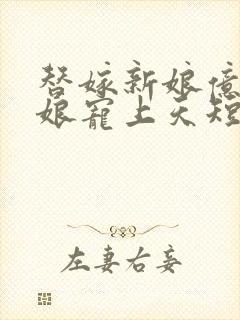 替嫁新娘億
娘寵上天短
左妻右妾